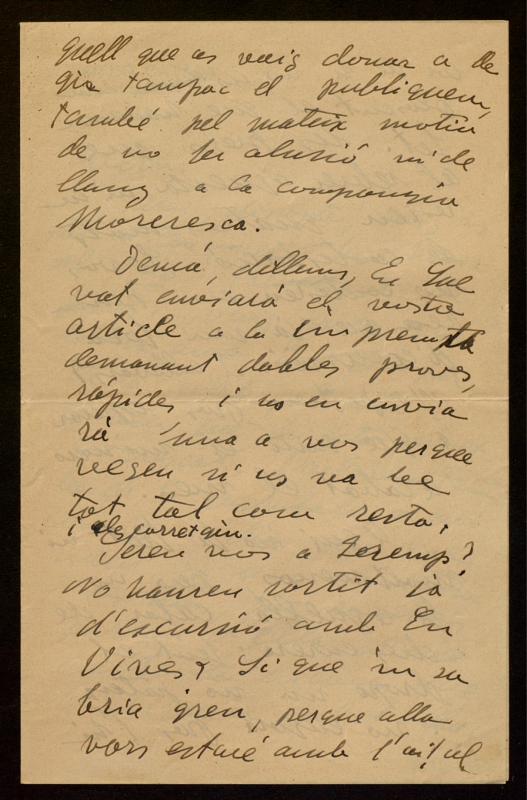 quell que us vaig donar a de
gia tampoc el publiquem,
també pel mateix motiu
de no fer alusió ni de
lluny a la companyia
Moreresca.
Demá, dilluns, En Sal
vat enviará el vostre
article a la imprempta
demanant dobles proves,
rápides i us en envia
rá una a vos perque
vegeu si us va be
tot tal com resta,
i les corretgiu.
Sereu vos a
No haureu sortit ja
d'escursió amb En
Vives? Si que 'm sa
bria greu, perque alla
vors estaré amb l'ai! al